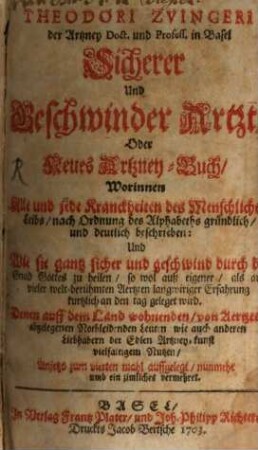 THEODORI ZVINGERI
der Artzney Doct. und Profess. in Basel
Sicherer
Und
Geschwinder Artzt
Oder
Neues Artzney-Buch/
Worinnen
Alle und jede Kranckheiten des Menschliche
Leibs/ nach Ordnung des Alphabeths gründlich/
und deutlich beschrieben:
Und
Wie sie gantz sicher und geschwind durch d
Gnad Gottes zu heilen/ so wol auß eigner/ als a
vieler welt-berühmten Aertzen langwiriger Erfahrung
kurtzlich an den tag geleget wird.
Denen auff dem Land wohnenden/ von Aertze
abgelegenen Nothleidenden Leuten wie auch anderen
Liebhabern der Edlen Artzney-kunst
vielfaltigem Nutzen/
zum vierten mahl auffgelegt/ nunmehr
und ein zimliches vermehret.
BASEL/
In Verlag Frantz Plater/ und Joh. Philipp Richter
Druckts Jacob Bertsche 1703.
R